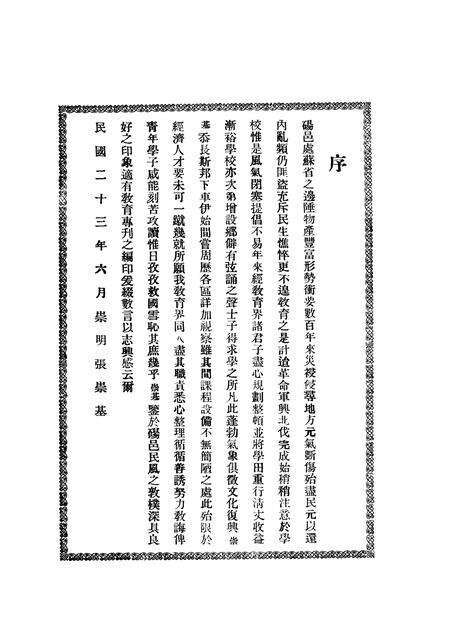 序
碭邑處蘇省之邊陲物產豐富形勢衝要數百年來災祲侵尋地方元氣斲傷殆盡民元以還
內亂頻仍匪盜充斥民生憔悴更不遑教育之是計迨革命軍興北伐完成始稍稍注意於學
校惟是風氣閉塞提倡不易年來經教育界諸君子盡心規劃整頓並將學田重行清丈收益
漸裕學校亦次第增設鄉僻有弦誦之聲士子得求學之所凡此蓬勃氣象俱徵文化復興崇
基忝長斯邦下車伊始間嘗周歷各區詳加視察雖其間課程設備不無簡陋之處此殆限於
經濟人才要未可一蹴幾就所願我教育界同人盡其職責悉心整理循循善誘努力教誨俾
青年學子咸能刻苦攻讀惟日孜孜救國雪恥其庶幾乎崇基鑒於碭邑民風之敦樸深具良
好之印象適有教育專刊之編印爰綴數言以志興感云爾
民國二十三年六月崇明張崇基